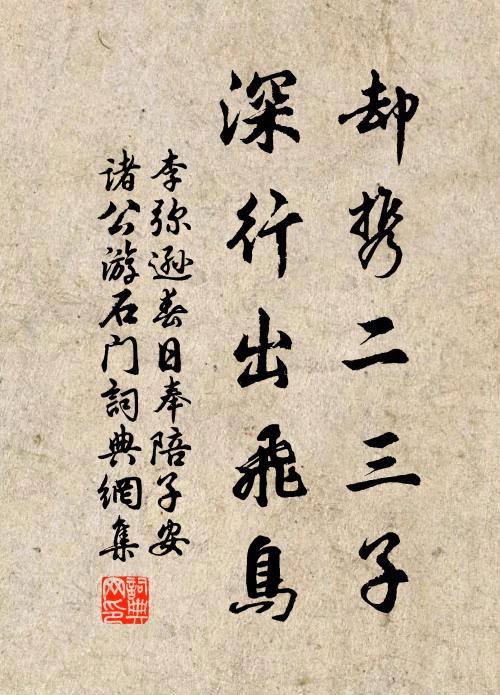 却携二三子
深行出飛鳥
李弥遜春日奉陪子安
諸公游石门詞典網集
詞典
网印